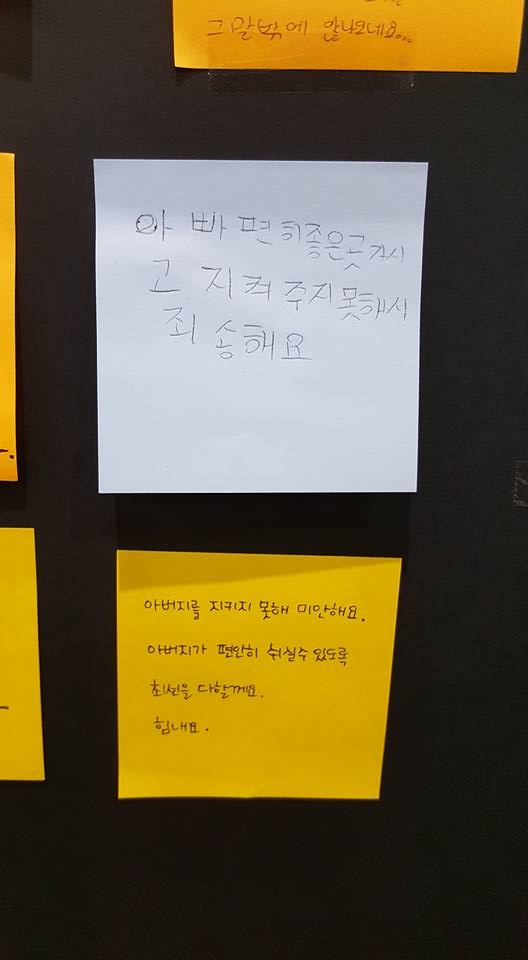 그 말밖에 안나오네요...
아빠 편히좋은곳가시
고 지켜 주지못해서
죄송해요
아버지를 지키지 못해 미안해요.
아버지가 편안히 쉬실수있도록
최선을 다할께요.
힘내요.